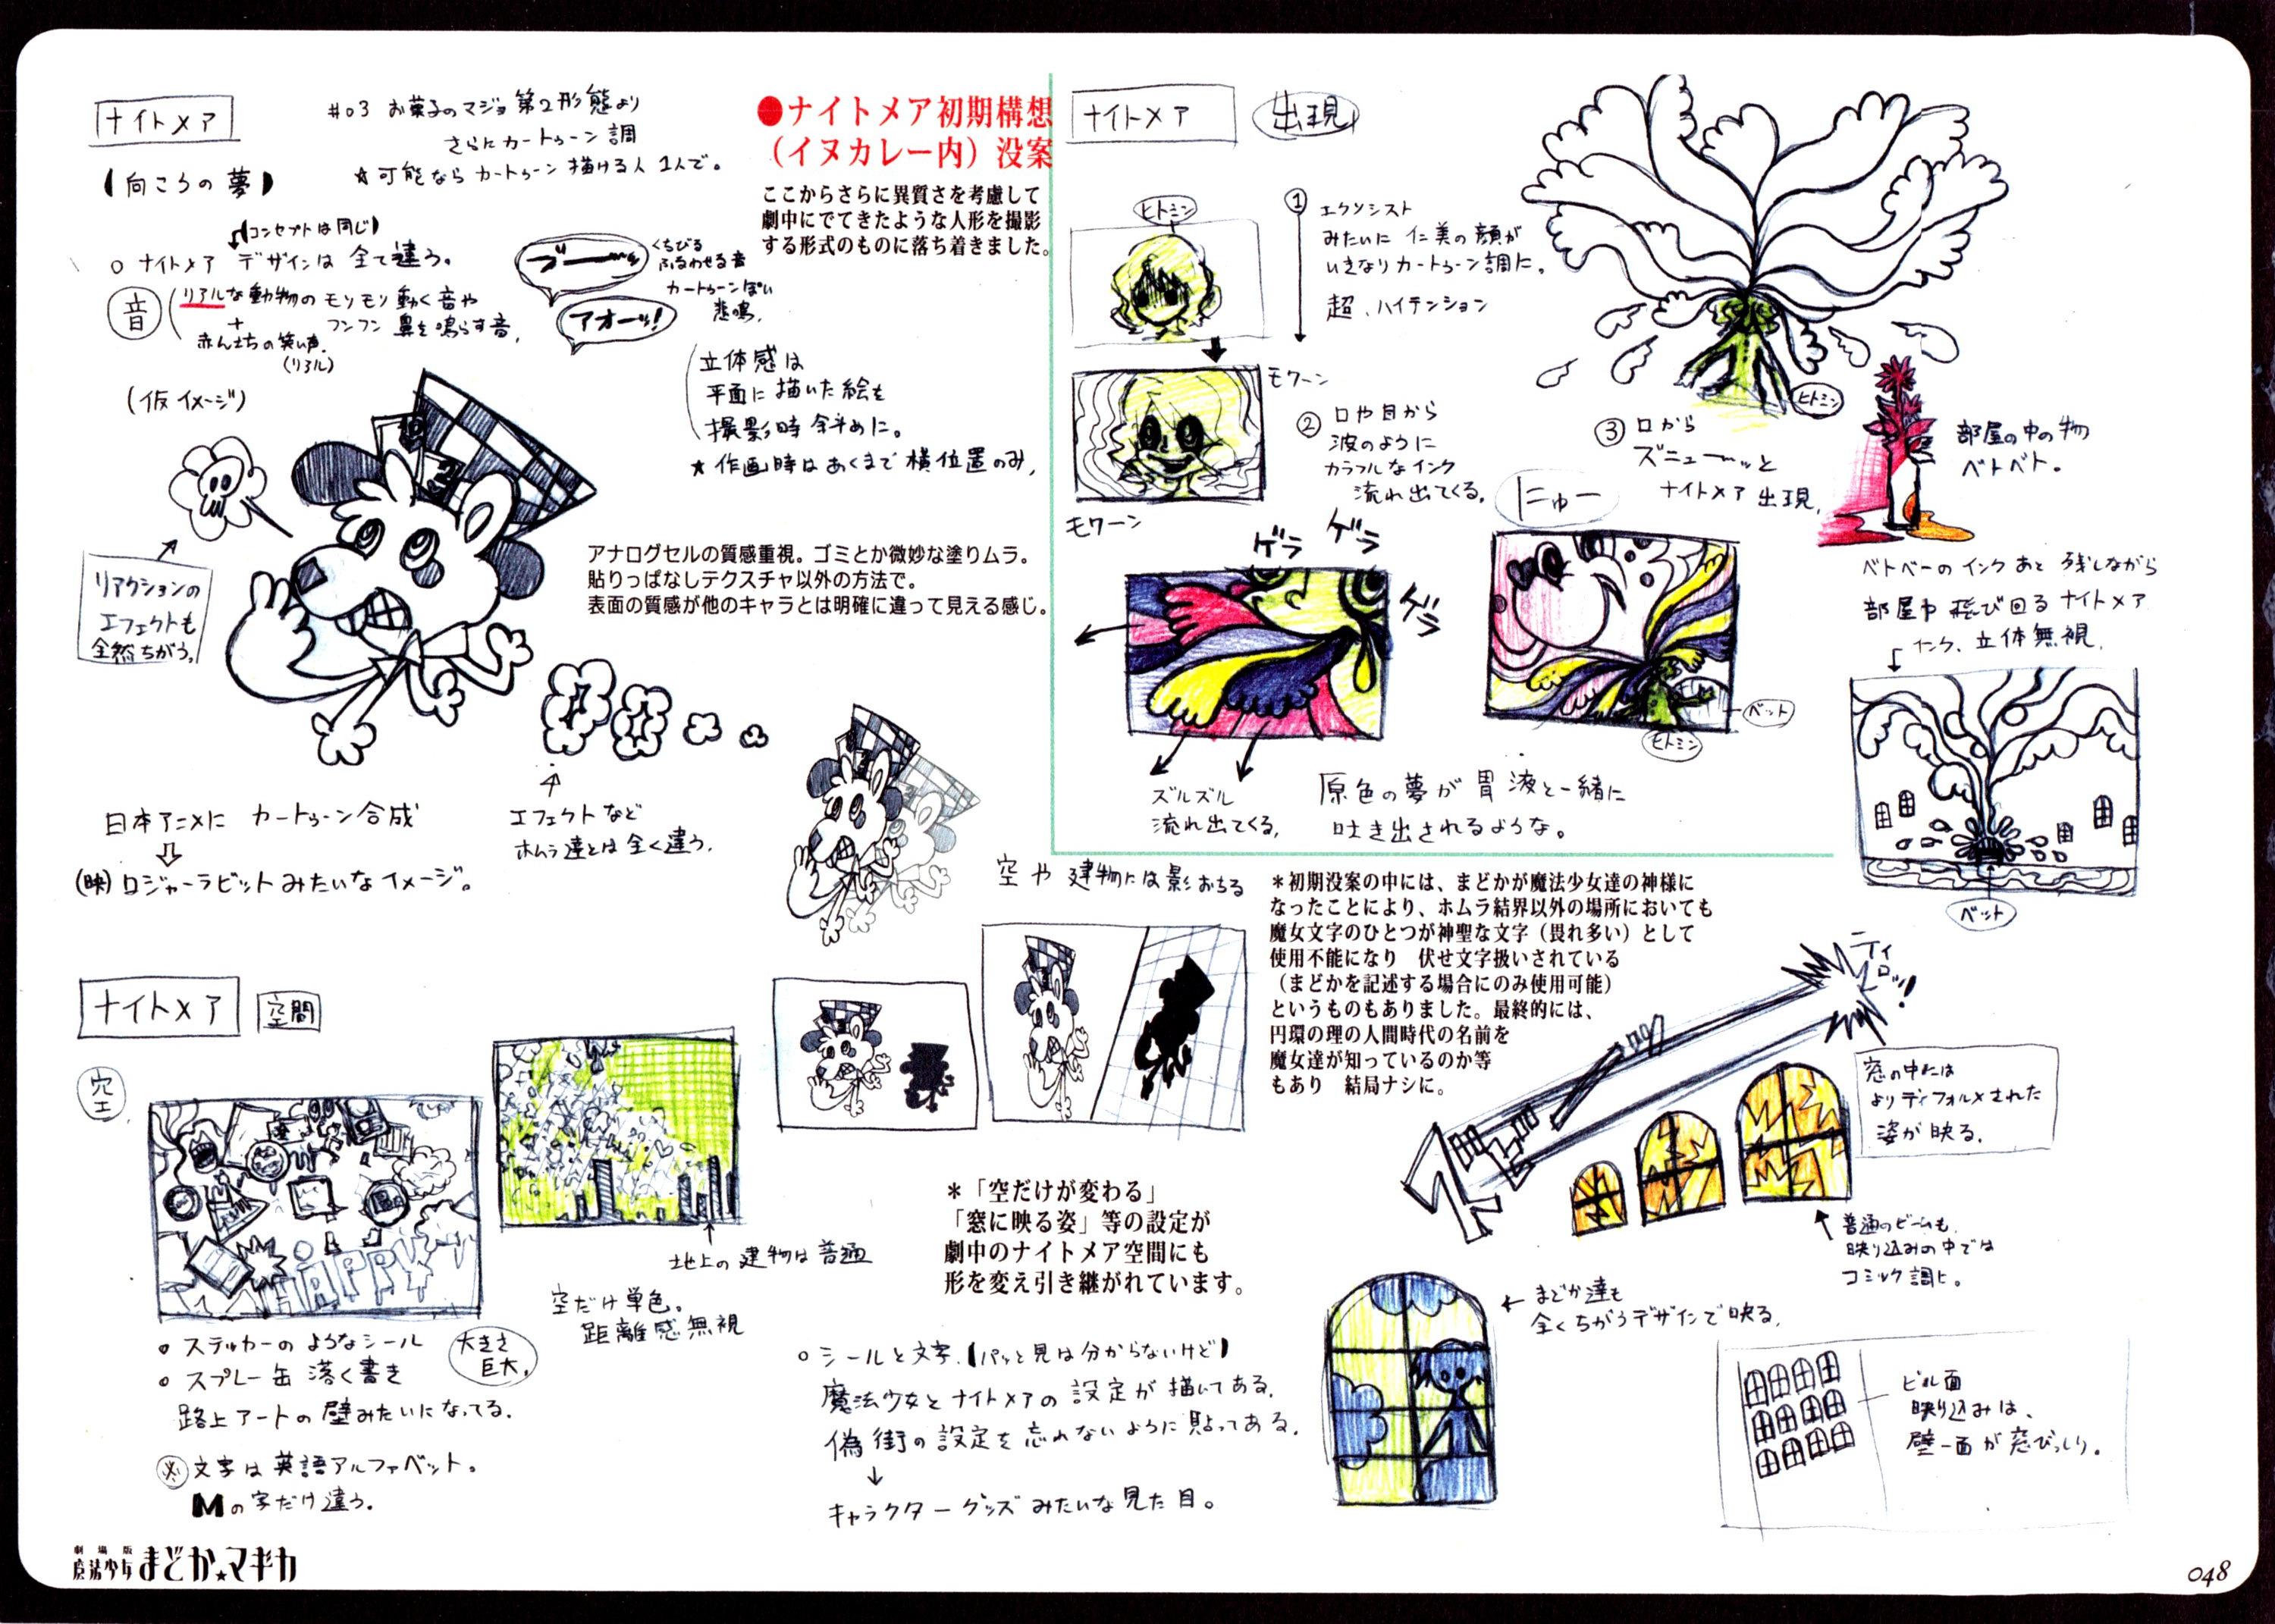 ナイトメア
【向こうの夢】
#03 お菓子のマジョ第2形態より
さらにカートゥーン調
☆可能なら カートゥーン描ける人 1人で。
●ナイトメア初期構想
（イヌカレー内）没案
ここからさらに異質さを考慮して
劇中にでてきたような人形を撮影
する形式のものに落ち着きました。
【コンセプトは同じ】
○ ナイトメア デザインは 全て違う。
音
リアルな動物の モソモソ動く音や
フンフン 鼻を鳴らす音、
+
赤んぼうの笑い声。
(リアル)
ブーーッ
くちびる
ふるわせる音
アオーッ!
カートゥーンぽい
悲鳴。
(仮イメージ)
立体感は
平面に描いた絵を
撮影時斜めに。
★作画時はあくまで横位置のみ、
リアクションの
エフェクトも
全然ちがう。
アナログセルの質感重視。ゴミとか微妙な塗りムラ。
貼りっぱなしテクスチャ以外の方法で。
表面の質感が他のキャラとは明確に違って見える感じ。
日本アニメに カートゥーン合成
(映)ロジャーラビットみたいなイメージ。
エフェクトなど
ホムラ達とは全く違う。
空や建物には影おちる
ナイトメア
出現
ヒトミン
①
エクソシスト
みたいに 仁美の顔が
いきなりカートゥーン調に。
超、ハイテンション
モワーン
モワーン
②
口や目から
波のように
カラフルなインク
流れ出てくる。
ヒトミン
③
口から
ズニューーッと
ナイトメア出現。
部屋の中の物
ベトベト。
ゲラ
ゲラ
ゲラ
にゅー
ベット
ヒトミン
ズルズル
流れ出てくる。
原色の夢が胃液と一緒に
吐き出されるような。
ベトベーのインクあと残しながら
部屋中飛び回るナイトメア
インク、立体無視。
ベット
＊初期没案の中には、まどかが魔法少女達の神様に
なったことにより、ホムラ結界以外の場所においても
魔女文字のひとつが神聖な文字（畏れ多い）として
使用不能になり　伏せ文字扱いされている
（まどかを記述する場合にのみ使用可能）
というものもありました。最終的には、
円環の理の人間時代の名前を
魔女達が知っているのか等
もあり　結局ナシに。
ナイトメア
空間
空
HAPPY
地上の建物は普通
空だけ単色。
距離感無視
・ステッカーのようなシール
・スプレー缶 落く書き
路上アートの壁みたいになってる。
大きさ
巨大。
※文字は英語アルファベット。
Mの字だけ違う。
＊「空だけが変わる」
「窓に映る姿」等の設定が
劇中のナイトメア空間にも
形を変え引き継がれています。
○シールと文字、【パッと見は分からないけど】
魔法少女とナイトメアの設定が描いてある。
偽街の設定を忘れないように貼ってある。
↓
キャラクターグッズみたいな見た目。
ティロッ!
窓の中には
よりディフォルメされた
姿が映る。
普通のビームも、
映り込みの中では
コミック調に。
← まどか達も
全くちがうデザインで映る。
ビル面
映り込みは、
壁一面が窓びっしり。
劇場版
魔法少女まどか★マギカ
048